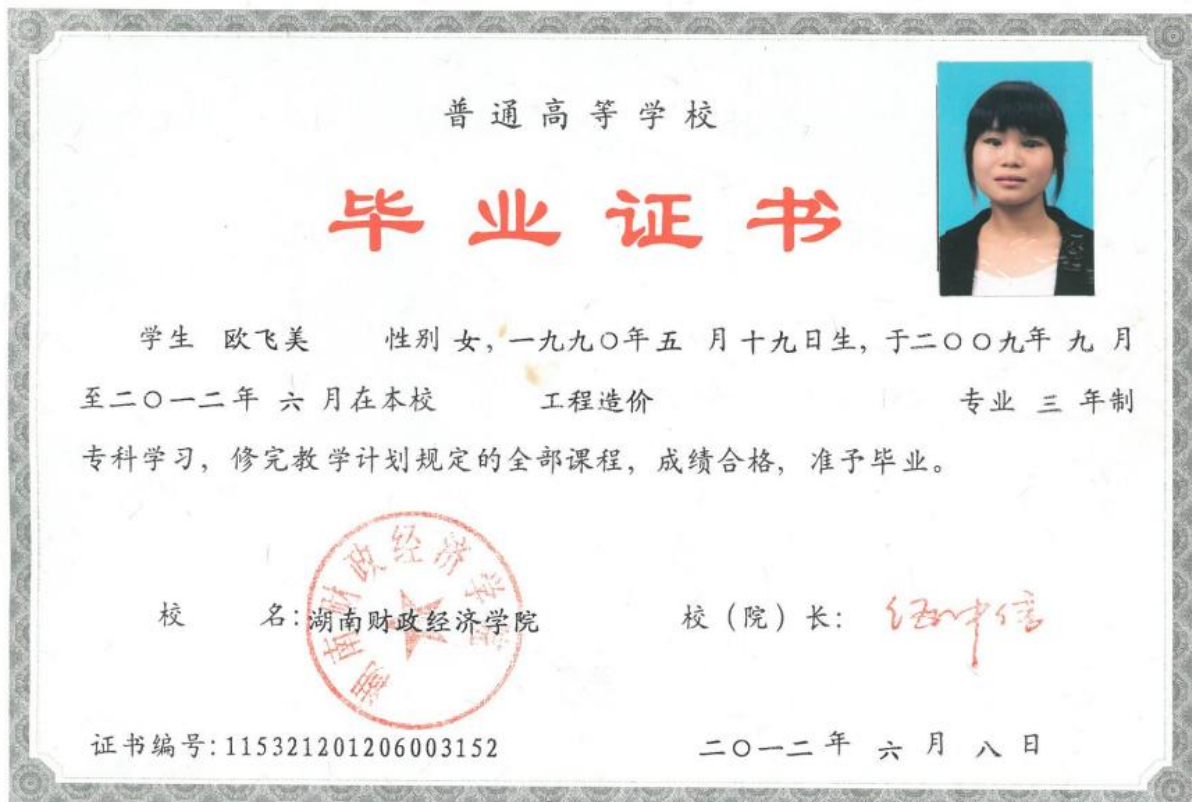 普通高等学校
毕业证书
学生 欧飞美 性别 女，一九九〇年五 月十九日生，于二〇〇九年 九 月
至二〇一二年 六 月在本校 工程造价 专业 三 年制
专科学习，修完教学计划规定的全部课程，成绩合格，准予毕业。
湖南财政经济学院
校 名：湖南财政经济学院 校（院）长：
证书编号：115321201206003152 二〇一二年 六 月 八 日